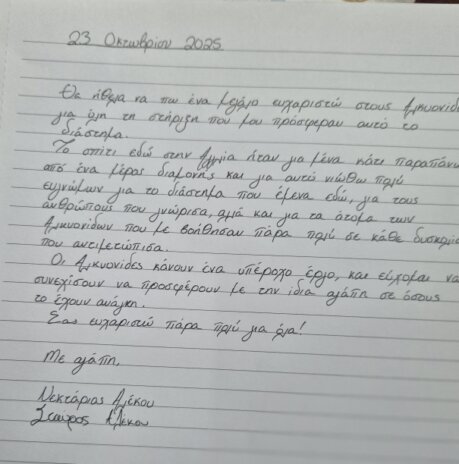 23 Οκτωβρίου 2025
Θα ήθελα να πω ένα μεγάλο ευχαριστώ στους Αλκυονίδε
για όλη τη στήριξη που μου πρόσφεραν αυτό το
διάστημα.
Το σπίτι εδώ στην Αγγλία ήταν για μένα κάτι παραπάνω
από ένα μέρος διαμονής και για αυτό νιώθω πολύ
ευγνώμων για το διάστημα που έμεινα εδώ, για τους
ανθρώπους που γνώρισα, αλλά και για τα άτομα των
Αλκυονίδων που με βοήθησαν πάρα πολύ σε κάθε δυσκολί
που αντιμετώπισα.
Οι Αλκυονίδες κάνουν ένα υπέροχο έργο, και εύχομαι να
συνεχίσουν να προσφέρουν με την ίδια αγάπη σε όσους
το έχουν ανάγκη.
Σας ευχαριστώ πάρα πολύ για όλα!
Με αγάπη,
Νεκτάριος Αλέκου
Σταύρος Αλέκου